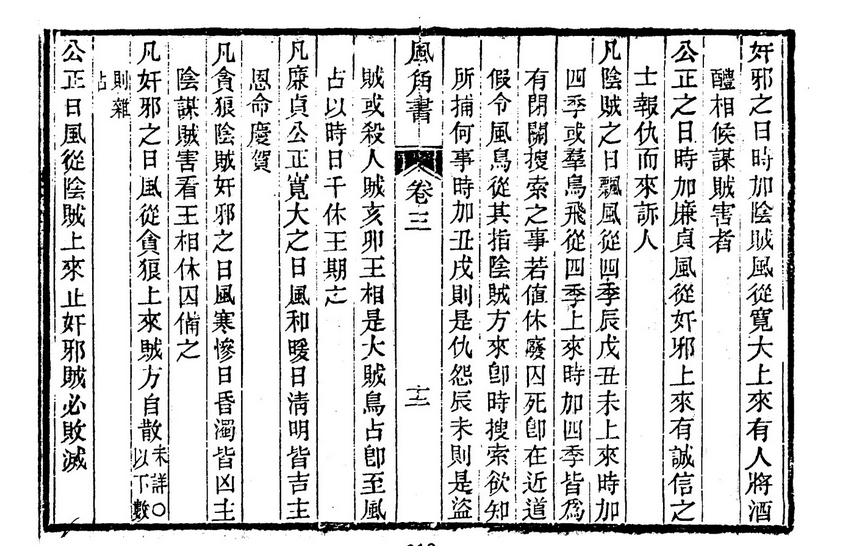 奸邪之日時加陰賊風從寬大上來有人將酒
醴相候謀賊害者
公正之日時加廉貞風從奸邪上來有誠信之
士報仇而來訴人
凡陰賊之日飄風從四季辰戊丑未上來時加
四季或羣鳥飛從四季上來時加四季皆爲
有閉關搜索之事若值休廢囚死卽在近道
假令風鳥從其指陰賊方來卽時搜索欲知
所捕何事時加丑戌則是仇怨辰未則是盜
風角書
卷三
十二
賊或殺人賊亥卯王相是大賊鳥占卽至風
占以時日干休王期之
凡廉貞公正寬大之日風和暖日清明皆吉主
恩命慶賀
凡貪狼陰賊奸邪之日風寒慘日昏濁皆凶主
陰謀賊害看王相休囚備之
凡奸邪之日風從貪狼上來賊方自散
未詳〇
以下數
則雜
占
公正日風從陰賊上來止奸邪賊必敗滅